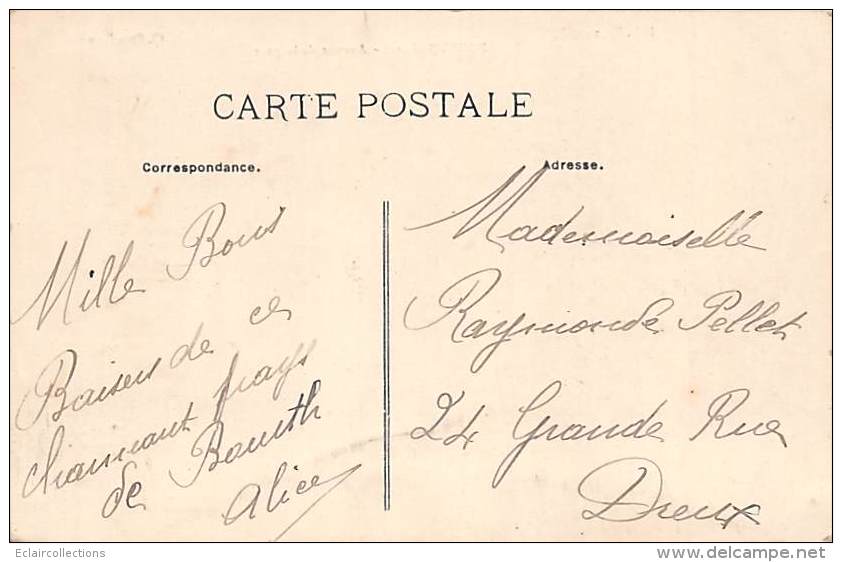 CARTE POSTALE
Correspondance.
Mille Bons
Baisers de ce
charmant pays
de
Alice
Adresse.
Mademoiselle
Raymonde Pellet
24 Grande Rue
Dreux
Eclaircollections
www.delcampe.net